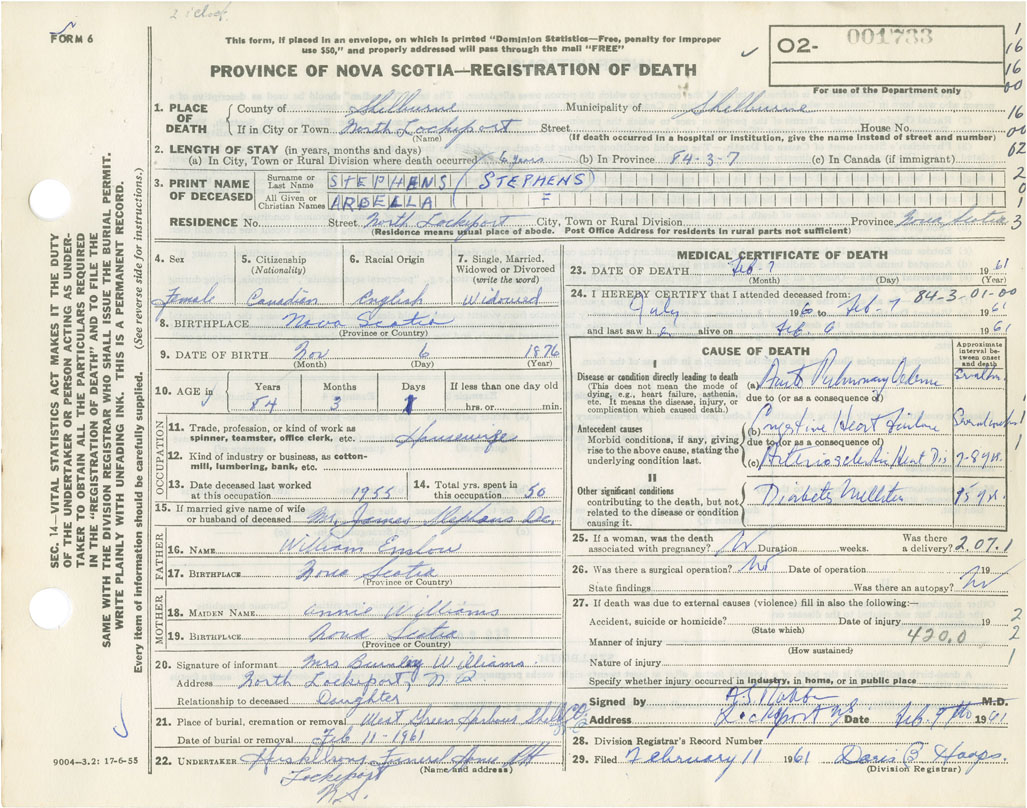 FORM 6
This form, if placed in an envelope, on which is printed "Dominion Statistics—Free, penalty for improper
use $50," and properly addressed will pass through the mail "FREE"
O2- 001733
For use of the Department only
PROVINCE OF NOVA SCOTIA—REGISTRATION OF DEATH
1. PLACE OF DEATH County of Shelburne Municipality of Shelburne
If in City or Town North Lockeport Street House No.
(Name) (If death occurred in a hospital or institution, give the name instead of street and number)
2. LENGTH OF STAY (in years, months and days)
(a) In City, Town or Rural Division where death occurred 6 years (b) In Province 84-3-7 (c) In Canada (if immigrant)
3. PRINT NAME OF DECEASED
Surname or Last Name STEPHENS (STEPHENS)
All Given or Christian Names ARBELLA F
RESIDENCE No. Street North Lockeport City, Town or Rural Division Province Nova Scotia
(Residence means usual place of abode. Post Office Address for residents in rural parts not sufficient)
4. Sex Female
5. Citizenship (Nationality) Canadian
6. Racial Origin English
7. Single, Married, Widowed or Divorced (write the word) Widowed
8. BIRTHPLACE Nova Scotia
(Province or Country)
9. DATE OF BIRTH Nov 6 1876
(Month) (Day) (Year)
10. AGE Years 84 Months 3 Days 1 If less than one day old hrs. or min.
OCCUPATION
11. Trade, profession, or kind of work as spinner, teamster, office clerk, etc. Housewife
12. Kind of industry or business, as cotton-mill, lumbering, bank, etc.
13. Date deceased last worked at this occupation 1955
14. Total yrs. spent in this occupation 50
15. If married give name of wife or husband of deceased Mr. James Stephens De.
FATHER
16. NAME William Enslow
17. BIRTHPLACE Nova Scotia
(Province or Country)
MOTHER
18. MAIDEN NAME Annie Williams
19. BIRTHPLACE Nova Scotia
(Province or Country)
20. Signature of informant Mrs Burnley Williams
Address North Lockeport, N.S.
Relationship to deceased Daughter
21. Place of burial, cremation or removal West Green Harbour Shelb Co
Date of burial or removal Feb 11-1961
22. UNDERTAKER Funeral Home
(Name and address)
Lockeport
N.S.
MEDICAL CERTIFICATE OF DEATH
23. DATE OF DEATH Feb-7 1961
(Month) (Day) (Year)
24. I HEREBY CERTIFY that I attended deceased from: 84-3-01-00
July 196 to Feb-7 1961
and last saw her alive on Feb 6 1961
CAUSE OF DEATH
Approximate interval between onset and death
I
Disease or condition directly leading to death
(This does not mean the mode of dying, e.g., heart failure, asthenia, etc. It means the disease, injury, or complication which caused death.)
(a) Acute Pulmonary Oedema
due to (or as a consequence of)
Antecedent causes
Morbid conditions, if any, giving rise to the above cause, stating the underlying condition last.
(b) Congestive Heart Failure
due to (or as a consequence of)
(c) Arteriosclerotic Heart Dis 7-8 yrs.
II
Other significant conditions
contributing to the death, but not related to the disease or condition causing it.
Diabetes Mellitus 15 yrs.
25. If a woman, was the death associated with pregnancy? No Duration weeks. Was there a delivery? 2.07.1
26. Was there a surgical operation? No Date of operation 19
State findings Was there an autopsy? No
27. If death was due to external causes (violence) fill in also the following:—
Accident, suicide or homicide? Date of injury 19
(State which)
Manner of injury 420.0
(How sustained)
Nature of injury
Specify whether injury occurred in industry, in home, or in public place
Signed by M.D.
Address Lockeport NS Date Feb. 1961
28. Division Registrar's Record Number
29. Filed February 11 1961 Doris B Hoops
(Division Registrar)
SEC. 14—VITAL STATISTICS ACT MAKES IT THE DUTY
OF THE UNDERTAKER OR PERSON ACTING AS UNDER-
TAKER TO OBTAIN ALL THE PARTICULARS REQUIRED
IN THE "REGISTRATION OF DEATH" AND TO FILE THE
SAME WITH THE DIVISION REGISTRAR WHO SHALL ISSUE THE BURIAL PERMIT.
WRITE PLAINLY WITH UNFADING INK. THIS IS A PERMANENT RECORD.
Every item of information should be carefully supplied. (See reverse side for instructions.)
9004-3.2: 17-6-55
1
16
16
00
16
00
62
2
0
1
3
1
1
2
2
1